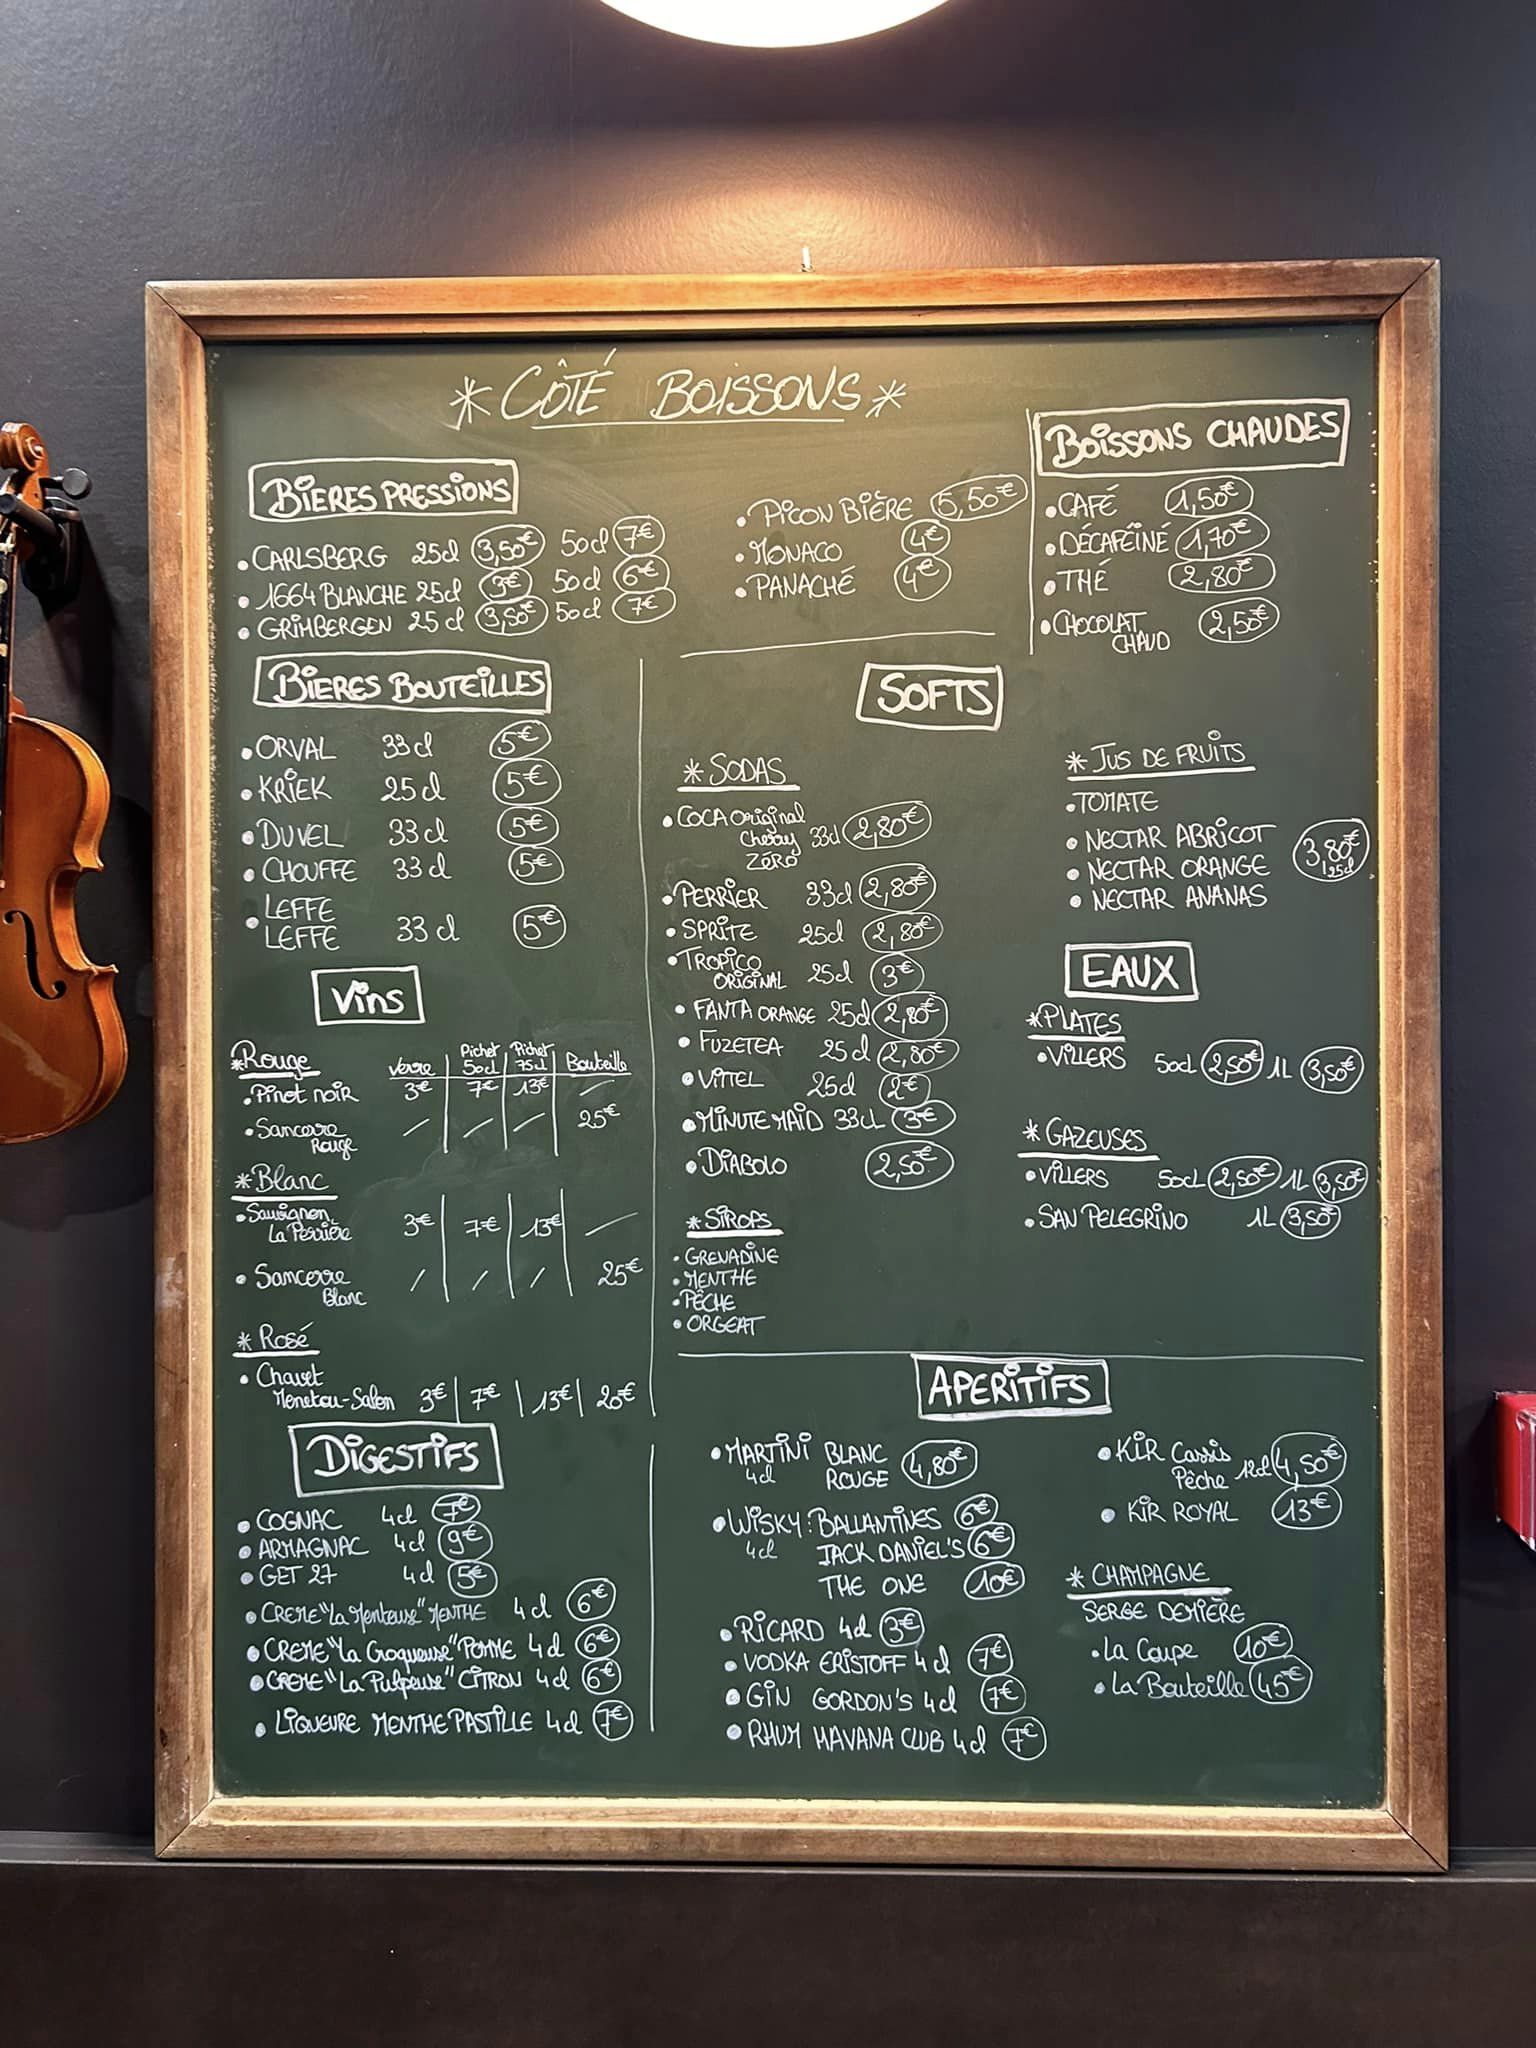 * CÔTÉ BOISSONS *
BIERES PRESSIONS
• CARLSBERG 25cl 3,50€ 50cl 7€
• 1664 BLANCHE 25cl 3€ 50cl 6€
• GRIMBERGEN 25cl 3,50€ 50cl 7€
• PICON BIÈRE 5,50€
• MONACO 4€
• PANACHÉ 4€
BOISSONS CHAUDES
• CAFÉ 1,50€
• DÉCAFÉINÉ 1,70€
• THÉ 2,80€
• CHOCOLAT
CHAUD 2,50€
BIERES BOUTEILLES
• ORVAL 33cl 5€
• KRIEK 25cl 5€
• DUVEL 33cl 5€
• CHOUFFE 33cl 5€
• LEFFE
LEFFE 33cl 5€
Vins
*Rouge Verre Pichet 50cl Pichet 75cl Bouteille
• Pinot noir 3€ 7€ 13€ /
• Sancerre
Rouge / / / 25€
*Blanc
• Sauvignon
La Perrière 3€ 7€ 13€ /
• Sancerre
Blanc / / / 25€
* Rosé
• Chavet
Menetou-Salon 3€ 7€ 13€ 20€
DIGESTIFS
• COGNAC 4cl 7€
• ARMAGNAC 4cl 9€
• GET 27 4cl 5€
• CREME "La Menteuse" MENTHE 4cl 6€
• CREME "La Croqueuse" POMME 4cl 6€
• CREME "La Pulpeuse" CITRON 4cl 6€
• LIQUEURE MENTHE PASTILLE 4cl 7€
SOFTS
* SODAS
• COCA Original
Cherry 33cl 2,80€
ZÉRO
• PERRIER 33cl 2,80€
• SPRITE 25cl 2,80€
• TROPICO
ORIGINAL 25cl 3€
• FANTA ORANGE 25cl 2,80€
• FUZETEA 25cl 2,80€
• VITTEL 25cl 2€
• MINUTE MAID 33CL 3€
• DIABOLO 2,50€
* SIROPS
• GRENADINE
• MENTHE
• PÊCHE
• ORGEAT
* JUS DE FRUITS
• TOMATE
• NECTAR ABRICOT
• NECTAR ORANGE 3,80€ 25cl
• NECTAR ANANAS
EAUX
*PLATES
• VILLERS 50cl 2,50€ 1L 3,50€
* GAZEUSES
• VILLERS 50cL 2,50€ 1L 3,50€
• SAN PELEGRINO 1L 3,50€
APERITIFS
• MARTINI BLANC
4cl ROUGE 4,80€
• WISKY : BALLANTINES 6€
4cl JACK DANIEL'S 6€
THE ONE 10€
• RICARD 4cl 3€
• VODKA ERISTOFF 4cl 7€
• GIN GORDON'S 4cl 7€
• RHUM HAVANA CLUB 4cl 7€
• KIR Cassis
Pêche 12cl 4,50€
• KIR ROYAL 13€
* CHAMPAGNE
SERGE DEMIÈRE
• La Coupe 10€
• La Bouteille 45€